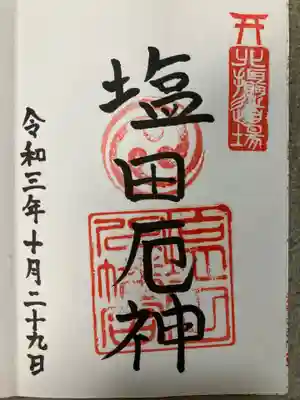 北摂道場
塩田厄神
令和三年十月二十九日